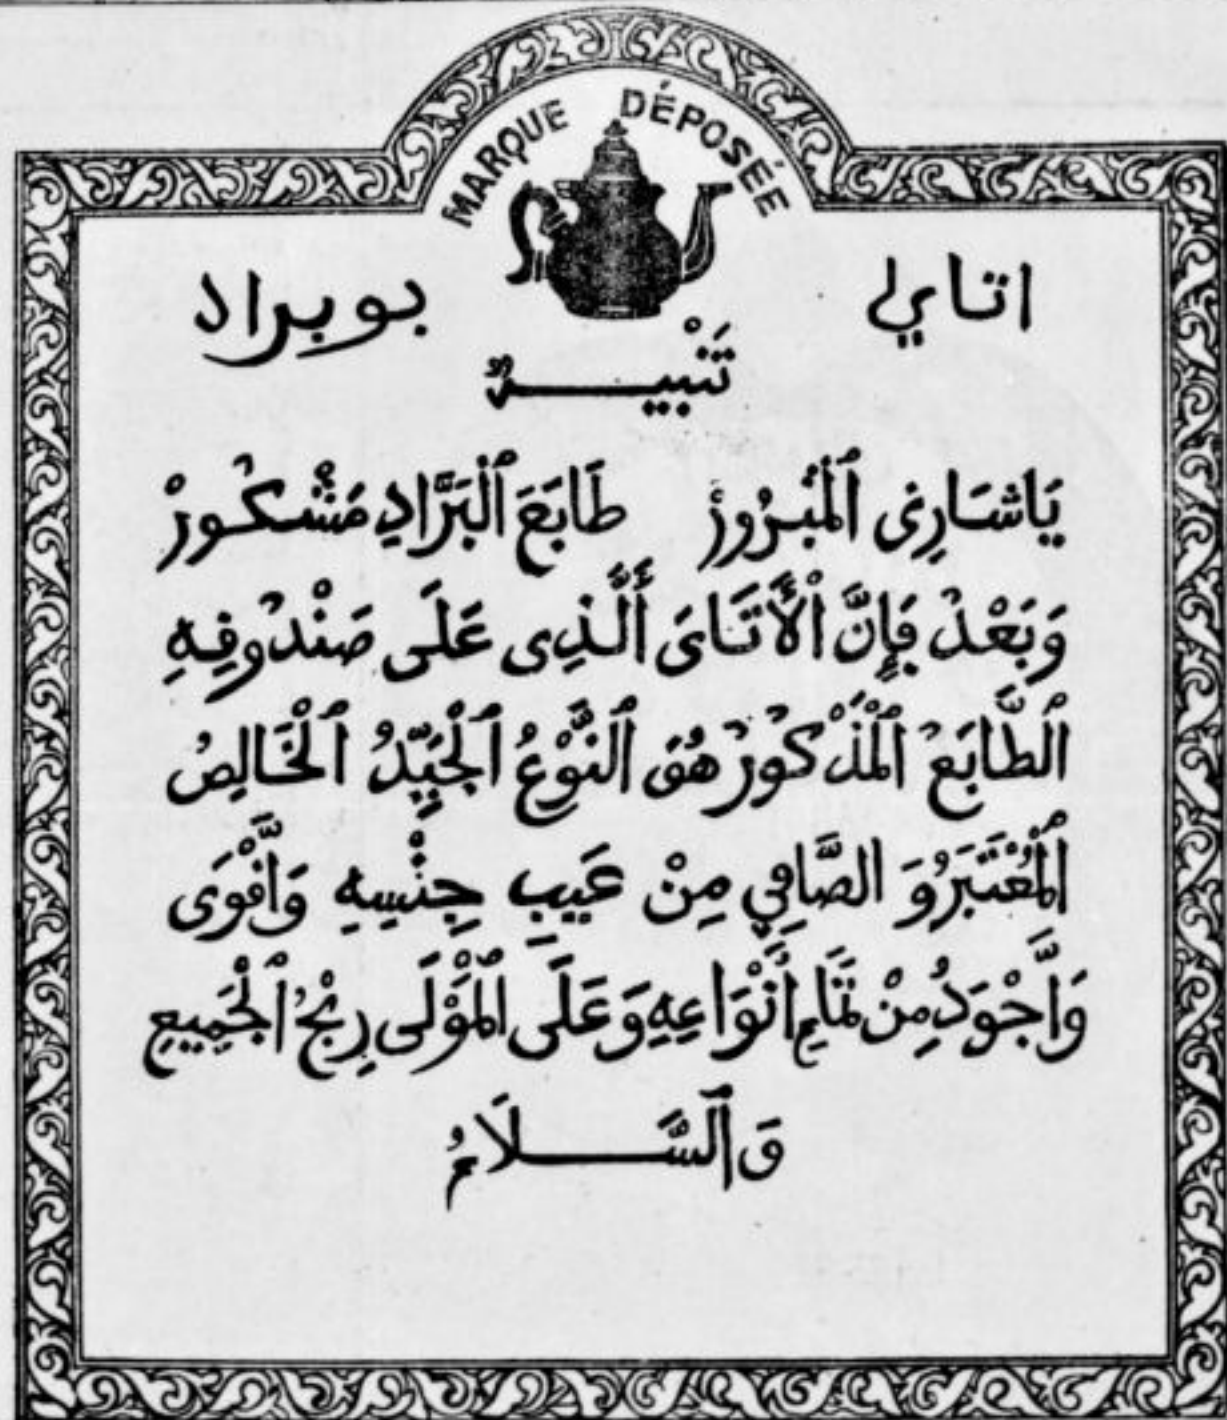 MARQUE DÉPOSÉE
اتاي بوبراد
تَنْبِيهٌ
يَاشَارِى ٱلْمَبْرُورْ طَابَعَ ٱلْبَرَّادِ مَشْكُورْ
وَبَعْدُ فَإِنَّ ٱلْأَتَاىَ ٱلَّذِى عَلَى صَنْدُوقِهِ
ٱلطَّابَعُ ٱلْمَذْكُورُ هُوَ ٱلنَّوْعُ ٱلْجَيِّدُ ٱلْخَالِصُ
ٱلْمُعْتَبَرُ وَ الصَّافِي مِنْ عَيبِ جِنْسِهِ وَأَقْوَى
وَأَجْوَدُ مِنْ أَنْوَاعِهِ وَعَلَى ٱلْمَوْلَى رِبْحُ ٱلْجَمِيعِ
وَٱلسَّلَامُ